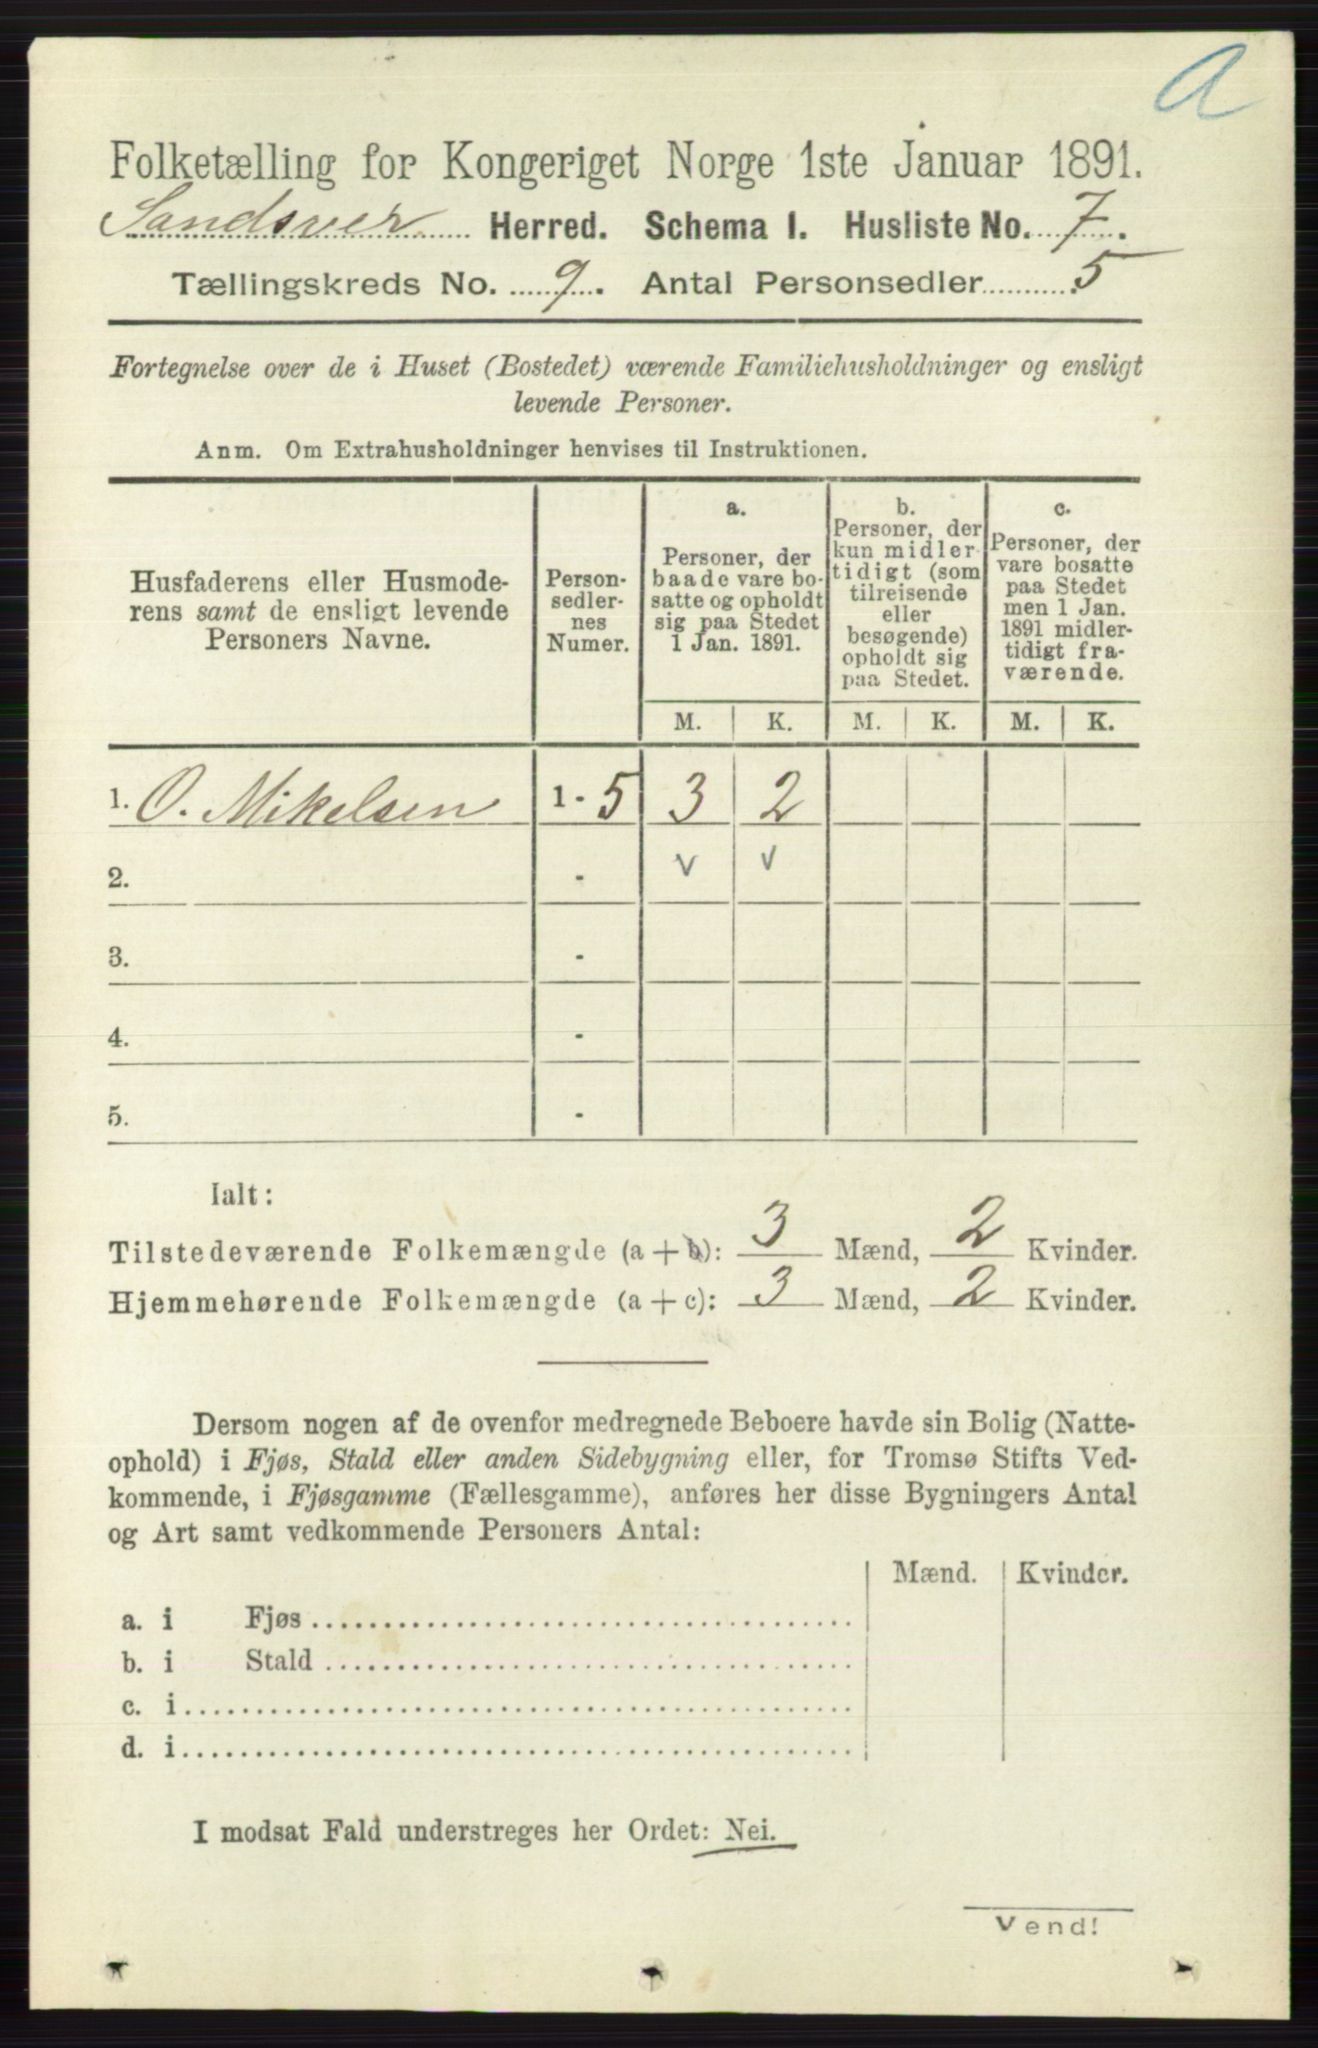 a
Folketælling for Kongeriget Norge 1ste Januar 1891.
Sandsver Herred. Schema I. Husliste No. 7.
Tællingskreds No. 9. Antal Personsedler 5
Fortegnelse over de i Huset (Bostedet) værende Familiehusholdninger og ensligt
levende Personer.
Anm. Om Extrahusholdninger henvises til Instruktionen.
Husfaderens eller Husmode-
rens samt de ensligt levende
Personers Navne.
Person-
sedler-
nes
Numer.
a.
Personer, der
baade vare bo-
satte og opholdt
sig paa Stedet
1 Jan. 1891.
b.
Personer, der
kun midler-
tidigt (som
tilreisende
eller
besøgende)
opholdt sig
paa Stedet.
c.
Personer, der
vare bosatte
paa Stedet
men 1 Jan.
1891 midler-
tidigt fra-
værende.
M. K. M. K. M. K.
1. O. Mikelsen 1 - 5 3 2
2. - v v
3. -
4. -
5. -
Ialt:
Tilstedeværende Folkemængde (a + b): 3 Mænd, 2 Kvinder.
Hjemmehørende Folkemængde (a + c): 3 Mænd, 2 Kvinder.
Dersom nogen af de ovenfor medregnede Beboere havde sin Bolig (Natte-
ophold) i Fjøs, Stald eller anden Sidebygning eller, for Tromsø Stifts Ved-
kommende, i Fjøsgamme (Fællesgamme), anføres her disse Bygningers Antal
og Art samt vedkommende Personers Antal:
Mænd. Kvinder.
a. i Fjøs
b. i Stald
c. i
d. i
I modsat Fald understreges her Ordet: Nei.
Vend!